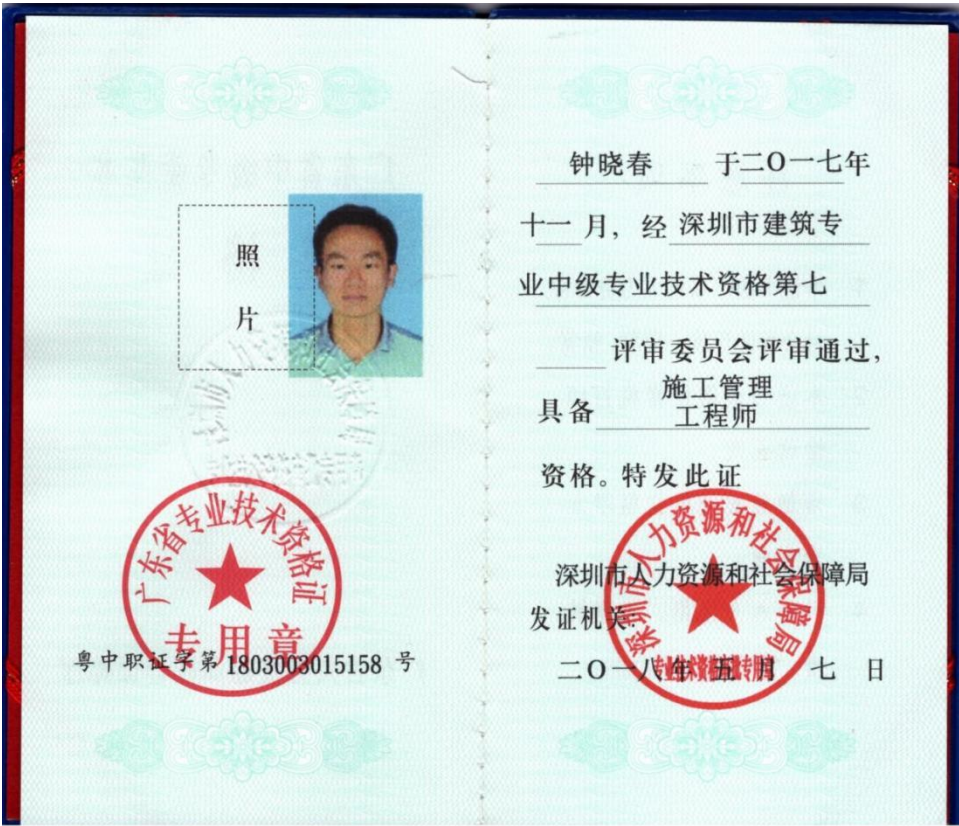 照
片
广东省专业技术资格证
专用章
粤中职证字第 1803003015158 号
钟晓春 于二O一七年
十一月，经 深圳市建筑专
业中级专业技术资格第七
评审委员会评审通过，
施工管理
具备 工程师
资格。特发此证
深圳市人力资源和社会保障局
深圳市人力资源和社会保障局
发证机关：
二O一八年 五 月 七 日